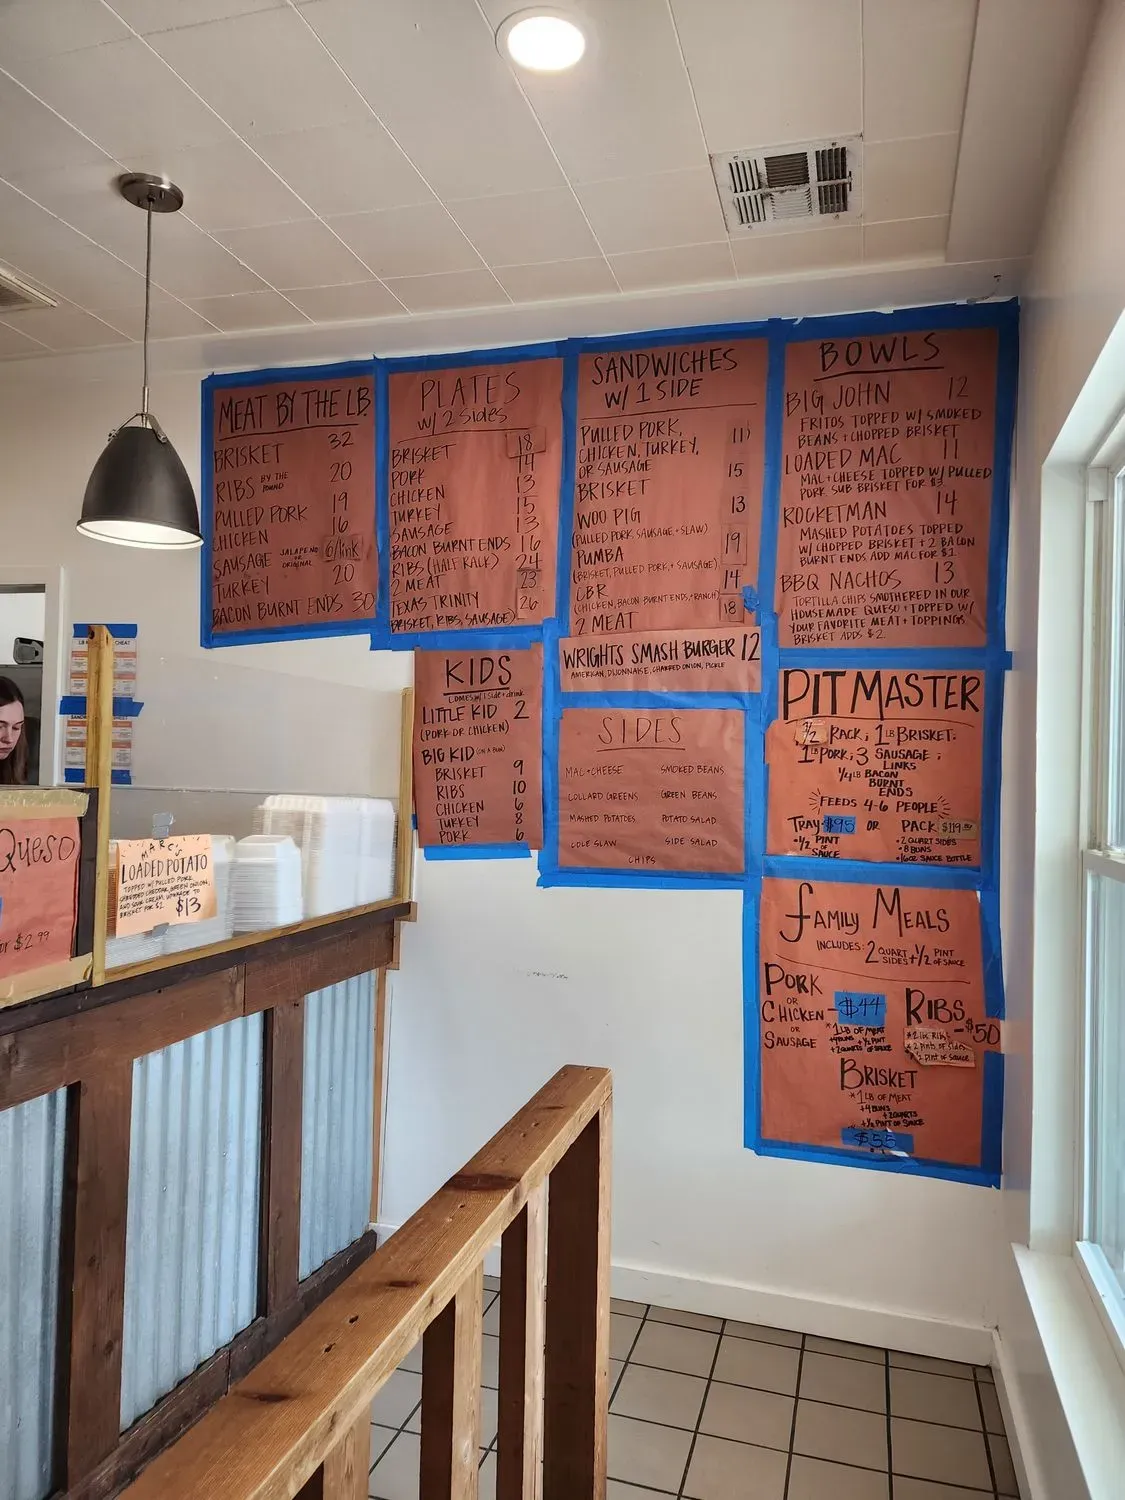 MEAT BY THE LB.
BRISKET 32
RIBS BY THE POUND 20
PULLED PORK 19
CHICKEN 16
SAUSAGE JALAPENO OR ORIGINAL 6/link
TURKEY 20
BACON BURNT ENDS 30
PLATES
w/ 2 Sides
BRISKET 18
PORK 14
CHICKEN 13
TURKEY 15
SAUSAGE 13
BACON BURNT ENDS 16
RIBS (HALF RACK) 24
2 MEAT 23
TEXAS TRINITY 26
BRISKET, RIBS, SAUSAGE)
SANDWICHES
W/ 1 SIDE
PULLED PORK, 11
CHICKEN, TURKEY,
OR SAUSAGE
BRISKET 15
WOO PIG 13
(PULLED PORK, SAUSAGE + SLAW)
PUMBA 19
(BRISKET, PULLED PORK, + SAUSAGE)
CBR 14
(CHICKEN, BACON BURNT ENDS, + RANCH)
2 MEAT 18
WRIGHTS SMASH BURGER 12
AMERICAN, DIJONNAISE, CHARRED ONION, PICKLE
BOWLS
BIG JOHN 12
FRITOS TOPPED W/ SMOKED
BEANS + CHOPPED BRISKET
LOADED MAC 11
MAC + CHEESE TOPPED W/ PULLED
PORK SUB BRISKET FOR $3
ROCKETMAN 14
MASHED POTATOES TOPPED
W/ CHOPPED BRISKET + 2 BACON
BURNT ENDS ADD MAC FOR $1.
BBQ NACHOS 13
TORTILLA CHIPS SMOTHERED IN OUR
HOUSEMADE QUESO + TOPPED W/
YOUR FAVORITE MEAT + TOPPINGS
BRISKET ADDS $2
KIDS
COMES w/ 1 side + drink
LITTLE KID 2
(PORK OR CHICKEN)
BIG KID (ON A BUN)
BRISKET 9
RIBS 10
CHICKEN 6
TURKEY 8
PORK 6
SIDES
MAC + CHEESE SMOKED BEANS
COLLARD GREENS GREEN BEANS
MASHED POTATOES POTATO SALAD
COLE SLAW SIDE SALAD
CHIPS
PIT MASTER
1/2 RACK; 1 LB BRISKET;
1 LB PORK; 3 SAUSAGE;
LINKS
1/4 LB BACON
BURNT
ENDS
FEEDS 4-6 PEOPLE
TRAY $95 OR PACK $119.00
• 1/2 PINT OF SAUCE
• 2 QUART SIDES
• 8 BUNS
• 16OZ SAUCE BOTTLE
FAMILY MEALS
INCLUDES: 2 QUART SIDES + 1/2 PINT OF SAUCE
PORK
OR
CHICKEN - $44
OR
SAUSAGE
*1 LB OF MEAT
+4 BUNS + 1/2 PINT
+ 2 QUARTS OF SAUCE
RIBS - $50
* 2 lbs Ribs
* 2 pints of sides
* 1/2 pint of sauce
BRISKET
*1 LB OF MEAT
+4 BUNS
+ 2 QUARTS
+ 1/2 PINT OF SAUCE
$55
Queso
for $2.99
MARC'S
LOADED POTATO
TOPPED W/ PULLED PORK,
SHREDDED CHEDDAR, GREEN ONION,
AND SOUR CREAM, UPGRADE TO
BRISKET FOR $2
$13